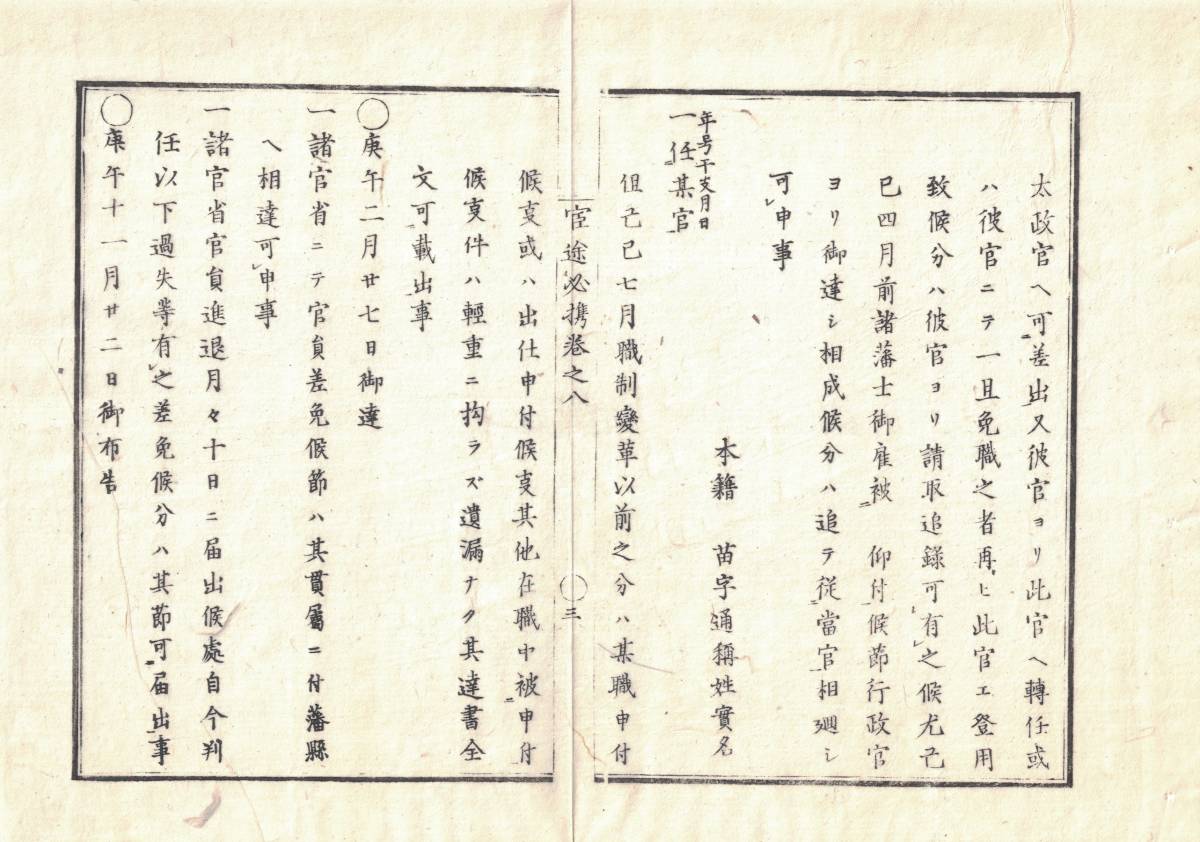 太政官ヘ可差出又彼官ヨリ此官ヘ轉任或
ハ彼官ニテ一且免職之者再ヒ此官エ登用
致候分ハ彼官ヨリ請取追錄可有之候尤己
巳四月前諸藩士御雇被　仰付候節行政官
ヨリ御達シ相成候分ハ追テ従當官相廻シ
可申事
本籍　苗字通稱姓實名
年号干支月日
一任某官
但己巳七月職制變革以前之分ハ某職申付
官途必携巻之八　〇三
候叓或ハ出仕申付候叓其他在職中被申付
候叓件ハ輕重ニ拘ラズ遺漏ナク其達書全
文可載出事
〇庚午二月廿七日御達
一諸官省ニテ官負差免候節ハ其貫屬ニ付藩縣
ヘ相達可申事
一諸官省官負進退月々十日ニ届出候處自今判
任以下過失等有之差免候分ハ其節可届出事
〇庚午十一月廿二日御布告